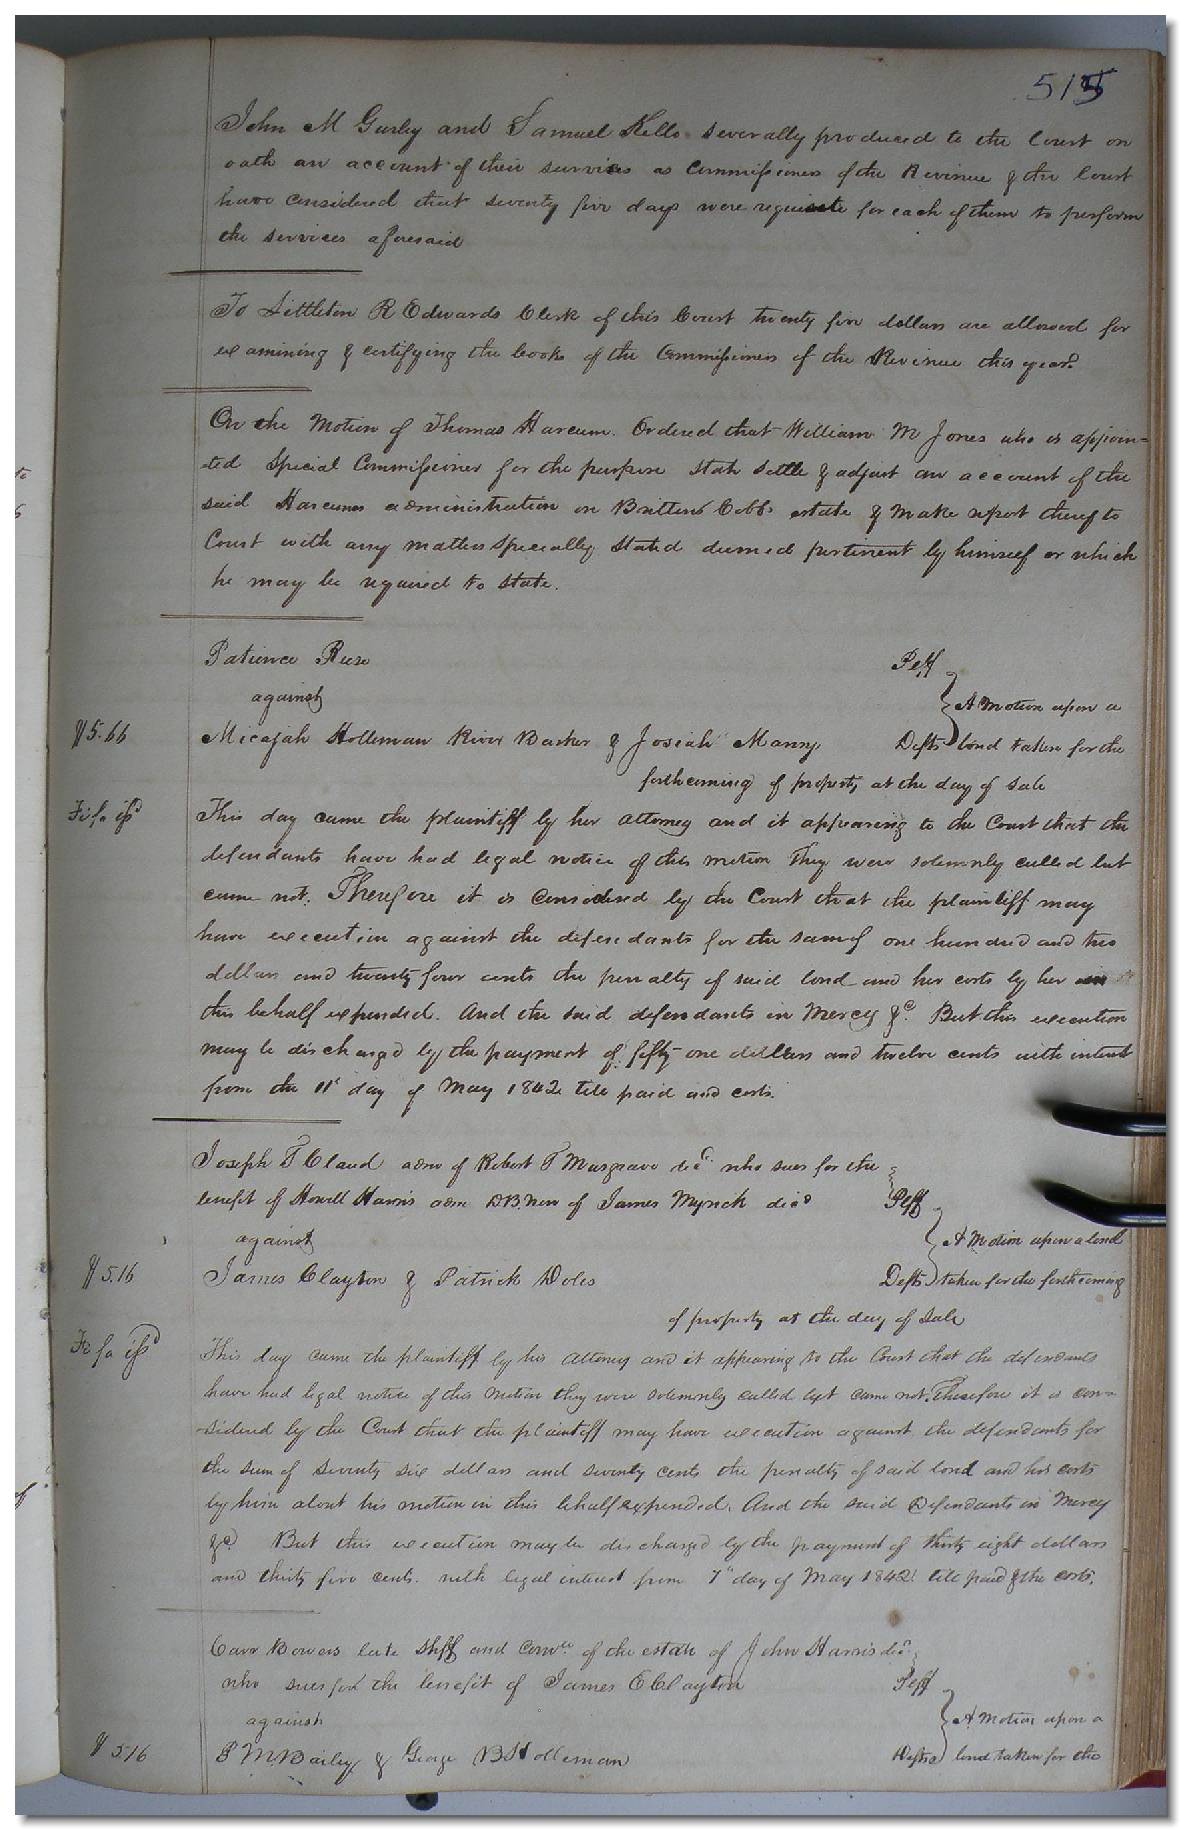 515
John M Gurley and Samuel Kello severally produced to the Court on
oath an account of their services as Commissioners of the Revenue & the Court
have considered that seventy five days were requisite for each of them to perform
the services aforesaid
To Littleton R Edwards Clerk of this Court twenty five dollars are allowed for
examining & certifying the books of the Commissioners of the Revenue this year.
On the Motion of Thomas Harcum. Ordered that William M Jones who is appoin=
ted Special Commissioner for the purpose state settle & adjust an account of the
said Harcums administration on Britten Cobbs estate & make report thereof to
Court with any matters specially stated deemed pertinent by himself or which
he may be required to state.
Patience Reese Plff
against
A Motion upon a
$5.66 Micajah Holleman River Barker & Josiah Manry Defts bond taken for the
forthcoming of property at the day of sale
Fi fa issd This day came the plaintiff by her attorney and it appearing to the Court that the
defendants have had legal notice of this motion They were solemnly called but
came not. Therefore it is considered by the Court that the plaintiff may
have execution against the defendants for the sum of one hundred and two
dollars and twenty four cents the penalty of said bond and her costs by her in
this behalf expended. And the said defendants in Mercy &c. But this execution
may be discharged by the payment of fifty one dollars and twelve cents with interest
from the 11t day of May 1842 till paid and costs.
Joseph T Claud admr of Robert T Musgrave decd who sues for the
benefit of Howell Harris adm D.B.Non of James Myrick decd Plff
against A Motion upon a bond
$5.16 James Clayton & Patrick Doles Defts taken for the forthcoming
of property at the day of sale
Fi fa issd This day came the plaintiff by his attorney and it appearing to the Court that the defendants
have had legal notice of this motion they were solemnly called but came not. Therefore it is con=
sidered by the Court that the plaintiff may have execution against the defendants for
the sum of seventy six dollars and seventy cents the penalty of said bond and his costs
by him about his motion in this behalf expended. And the said Defendants in Mercy
&c. But this execution may be discharged by the payment of thirty eight dollars
and thirty five cents. with legal interest from 7th day of May 1842 till paid & the costs.
Carr Bowers late Shff and Comee of the estate of John Harris decd
who sues for the benefit of James C Clayton Plff
against A Motion upon a
$5.16 P M Bailey & George B Holleman Defts bond taken for the